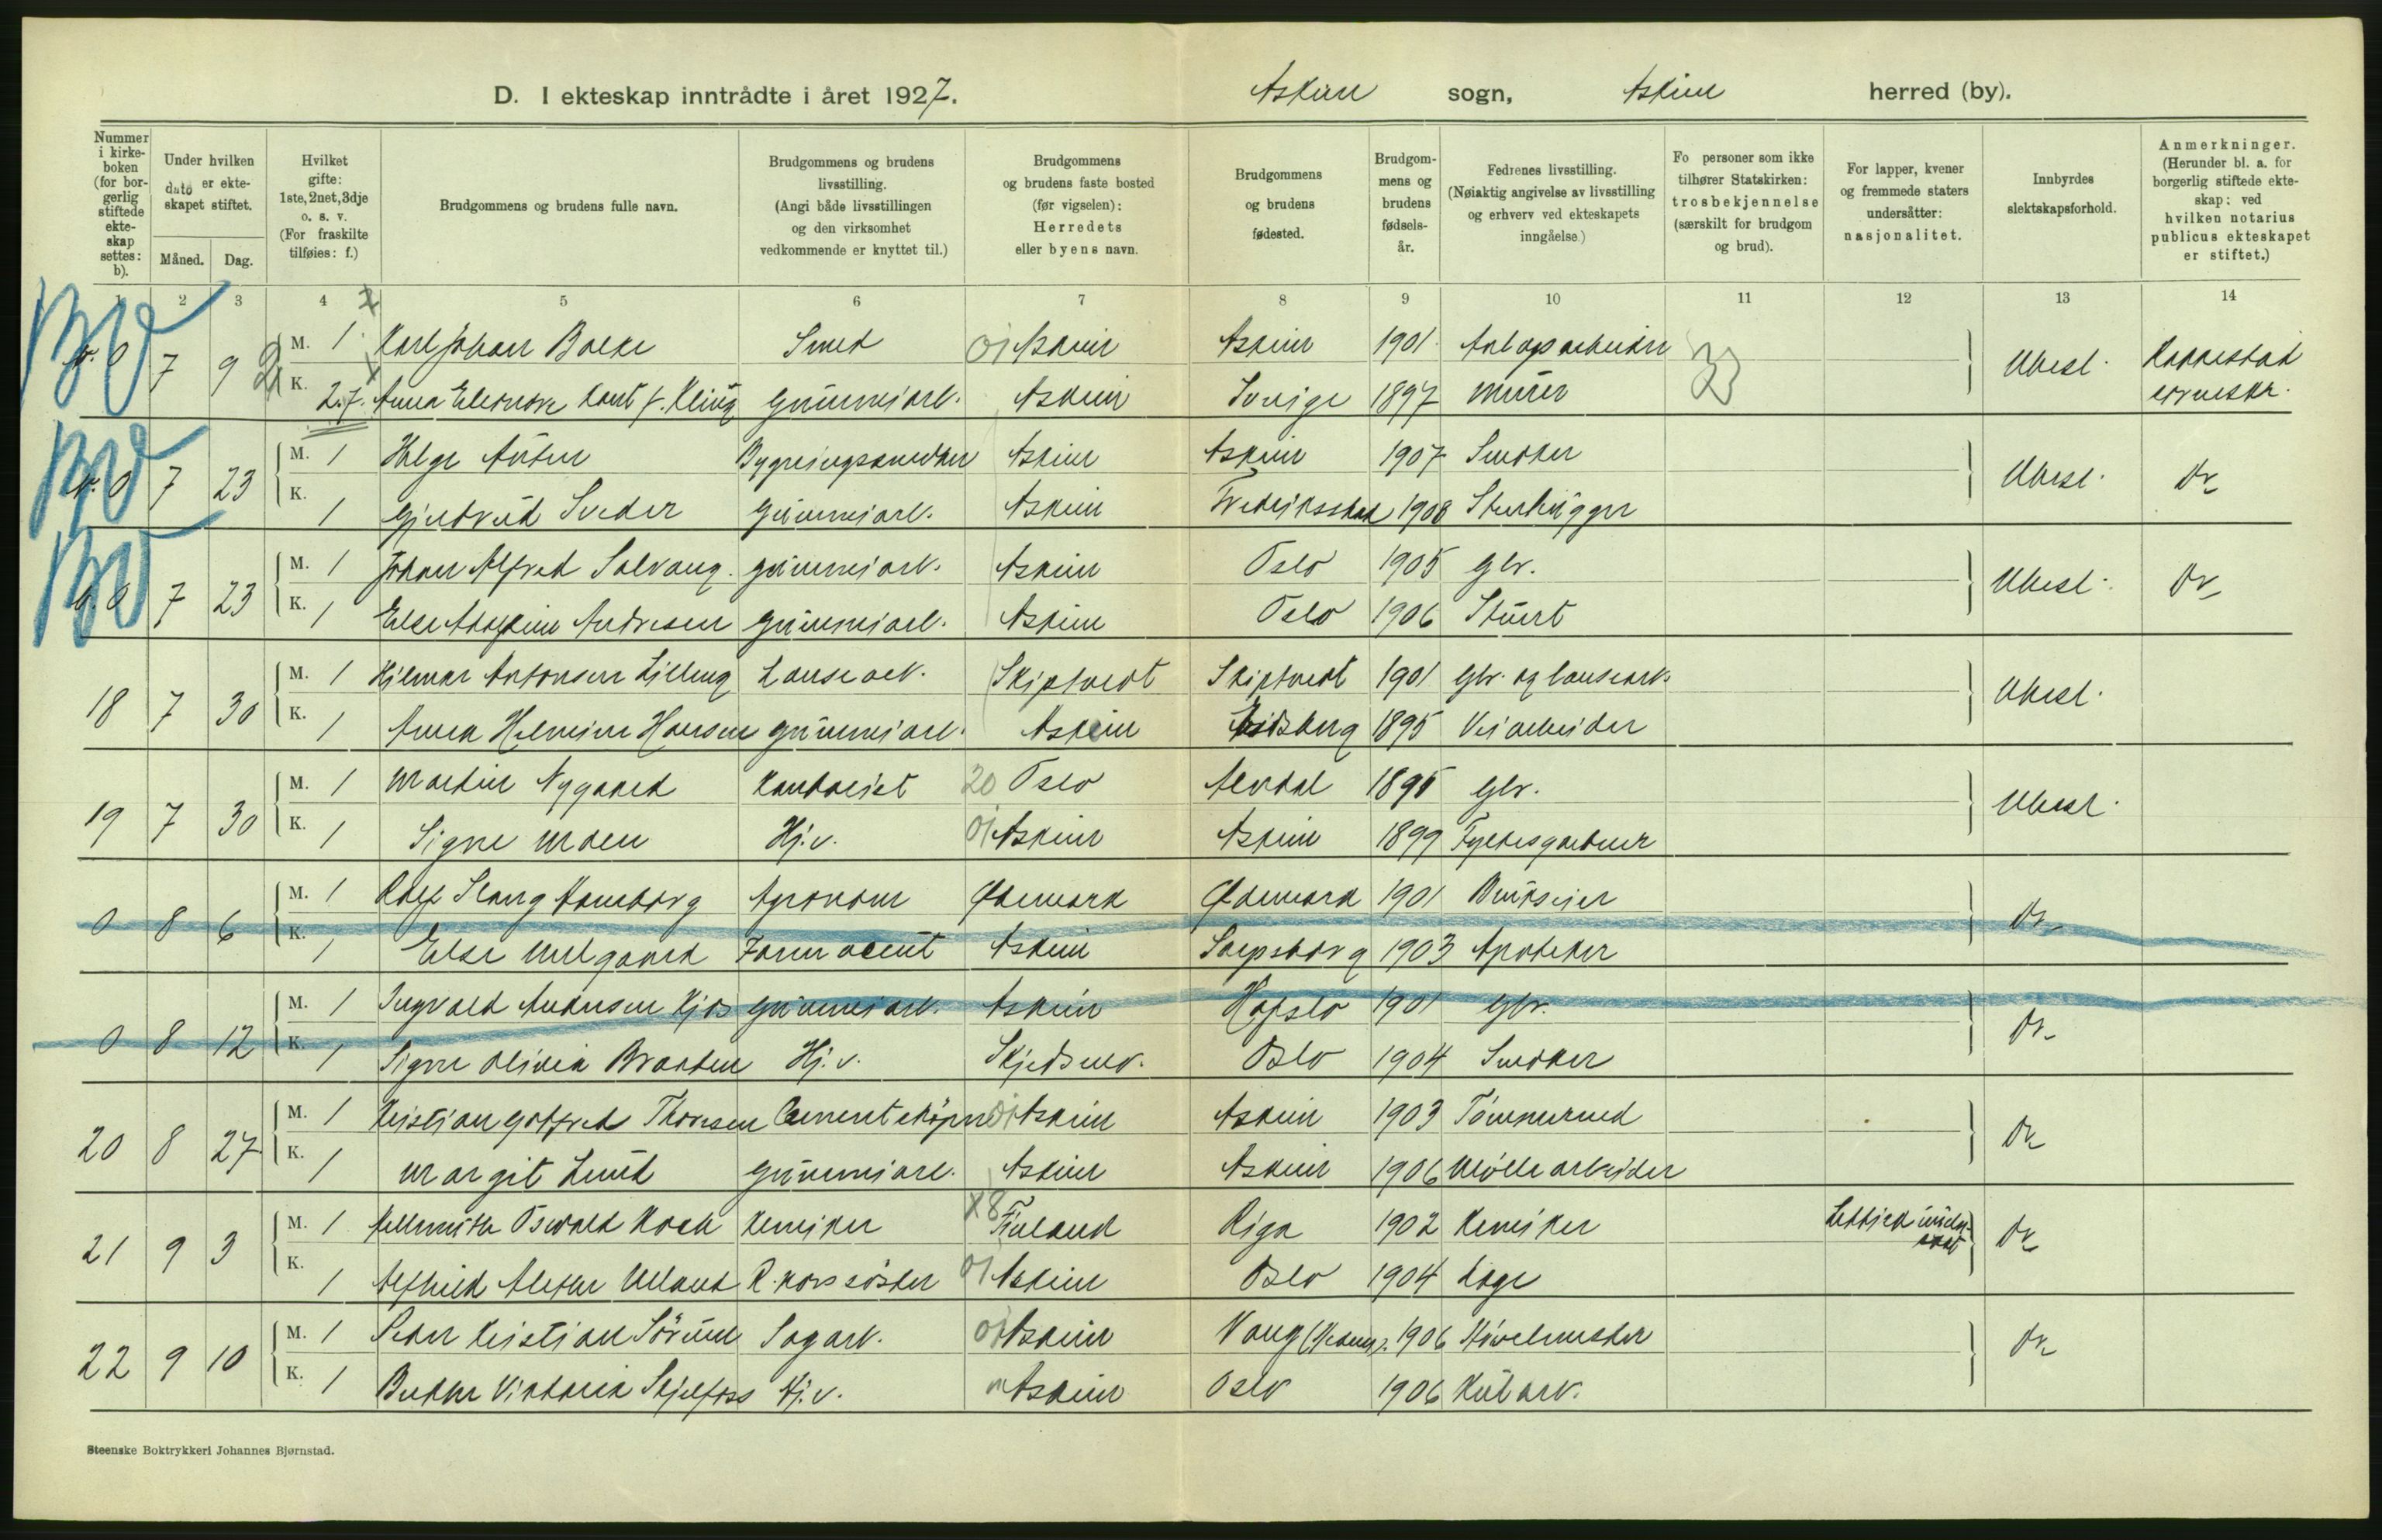 D. I ekteskap inntrådte i året 1927. Askim sogn, Askim herred (by).
Nummer i kirke-boken (for bor-gerlig stiftede ekte-skap settes: b).
Under hvilken dato er ekte-skapet stiftet.
Måned. Dag.
Hvilket gifte: 1ste, 2net, 3dje o. s. v. (For fraskilte tilføies: f.)
Brudgommens og brudens fulle navn.
Brudgommens og brudens livsstilling. (Angi både livsstillingen og den virksomhet vedkommende er knyttet til.)
Brudgommens og brudens faste bosted (før vigselen): Herredets eller byens navn.
Brudgommens og brudens fødested.
Brudgom-mens og brudens fødsels-år.
Fedrenes livsstilling. (Nøiaktig angivelse av livsstilling og erhverv ved ekteskapets inngåelse.)
Fo personer som ikke tilhører Statskirken: trosbekjennelse (særskilt for brudgom og brud).
For lapper, kvener og fremmede staters undersåtter: nasjonalitet.
Innbyrdes slektskapsforhold.
Anmerkninger. (Herunder bl. a. for borgerlig stiftede ekte-skap: ved hvilken notarius publicus ekteskapet er stiftet.)
1 2 3 4 5 6 7 8 9 10 11 12 13 14
BV 7 9 M. 1 Karl Johan Smed 01 Askim Askim 1901 Ubesl. Rakkestad
K. 2.f. Anna Eleonore f. Kling Gummiarb. Askim Sverige 1897 Murer sorenskr.
BV 7 23 M. 1 Helge Bygningssnedker Askim Askim 1907 Snekker Ubesl. Do
K. 1 Gjertrud Gummiarb. Askim Fredriksstad 1908 Stenhugger
BV 7 23 M. 1 Johan Alfred Solvang Gummiarb. Askim Oslo 1905 Gbr. Ubesl. Do
K. 1 Else Andresen Gummiarb. Askim Oslo 1906 Stuert
18 7 30 M. 1 Hjelmar Antonsen Lilleng Lauseark. Skiptvedt Skiptvedt 1901 Gbr. og lauseark. Ubesl.
K. 1 Anna Helmine Hansen Gummiarb. Askim Eidsberg 1895 Veiarbeider
19 7 30 M. 1 Martin Nygaard Kontorist 20 Oslo Alvdal 1895 Gbr. Ubesl.
K. 1 Signe Moen Hj.v. 01 Askim Askim 1899 Fylkesgartner
0 8 6 M. 1 Rolf Stang Hamborg Agronom Ødemark Ødemark 1901 Brukseier Do
K. 1 Else Farmaceut Askim Sarpsborg 1903 Apoteker
0 8 12 M. 1 Ingvald Andersen Kjos Gummiarb. Askim Hafslo 1901 Gbr. Do
K. 1 Signe Olivia Braaten Hj.v. Skjedsmo. Oslo 1904 Snekker
20 8 27 M. 1 Kristian Gotfred Thoresen Cementstöper 01 Askim Askim 1903 Tömmermd Do
K. 1 Margit Lund Gummiarb. Askim Askim 1906 Möllearbeider
21 9 3 M. 1 Hellmuth Oswald Koch Kemiker X8 Finland Riga 1902 Kemiker Lettisk undersaat Do
K. 1 Alfhild Alethe R. korssöster 01 Askim Oslo 1904 Læge
22 9 10 M. 1 Peder Kristian Sörum Sagarb. 01 Askim Vang (Hedm.) 1906 Hövelmester Do
K. 1 Berthe Viktoria Skjelfoss Hj.v. Askim Oslo 1906 Kularb.
Steenske Boktrykkeri Johannes Bjørnstad.